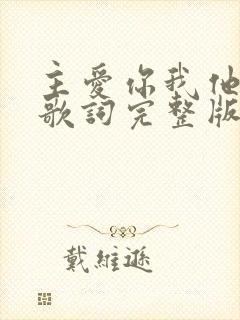 主愛你我他
歌詞完整版
戴維遜